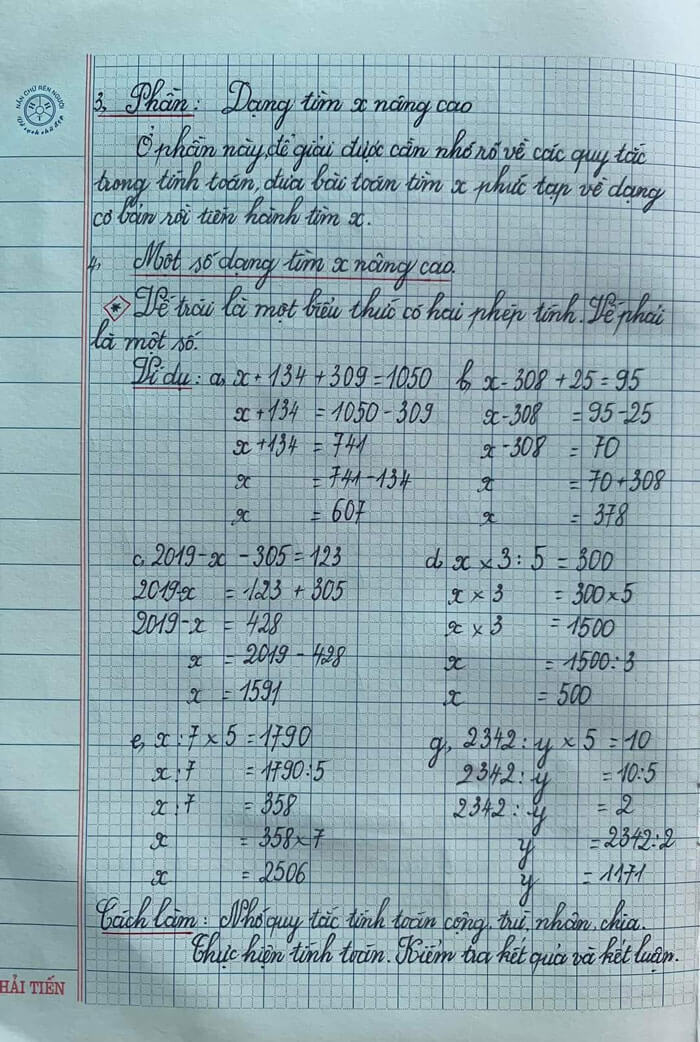 NẮN CHỮ RÈN NGƯỜI
3, Phần: Dạng tìm x nâng cao
Ở phần này, để giải được cần nhớ rõ về các quy tắc
trong tính toán, đưa bài toán tìm x phức tạp về dạng
cơ bản rồi tiến hành tìm x.
4, Một số dạng tìm x nâng cao.
* Vế trái là một biểu thức có hai phép tính. Vế phải
là một số.
Ví dụ: a, x + 134 + 309 = 1050 b, x - 308 + 25 = 95
x + 134 = 1050 - 309 x - 308 = 95 - 25
x + 134 = 741 x - 308 = 70
x = 741 - 134 x = 70 + 308
x = 607 x = 378
c, 2019 - x - 305 = 123 d, x × 3 : 5 = 300
2019 - x = 123 + 305 x × 3 = 300 × 5
2019 - x = 428 x × 3 = 1500
x = 2019 - 428 x = 1500 : 3
x = 1591 x = 500
e, x : 7 × 5 = 1790 g, 2342 : y × 5 = 10
x : 7 = 1790 : 5 2342 : y = 10 : 5
x : 7 = 358 2342 : y = 2
x = 358 × 7 y = 2342 : 2
x = 2506 y = 1171
Cách làm: Nhớ quy tắc tính toán cộng, trừ, nhân, chia.
Thực hiện tính toán. Kiểm tra kết quả và kết luận.
HẢI TIẾN